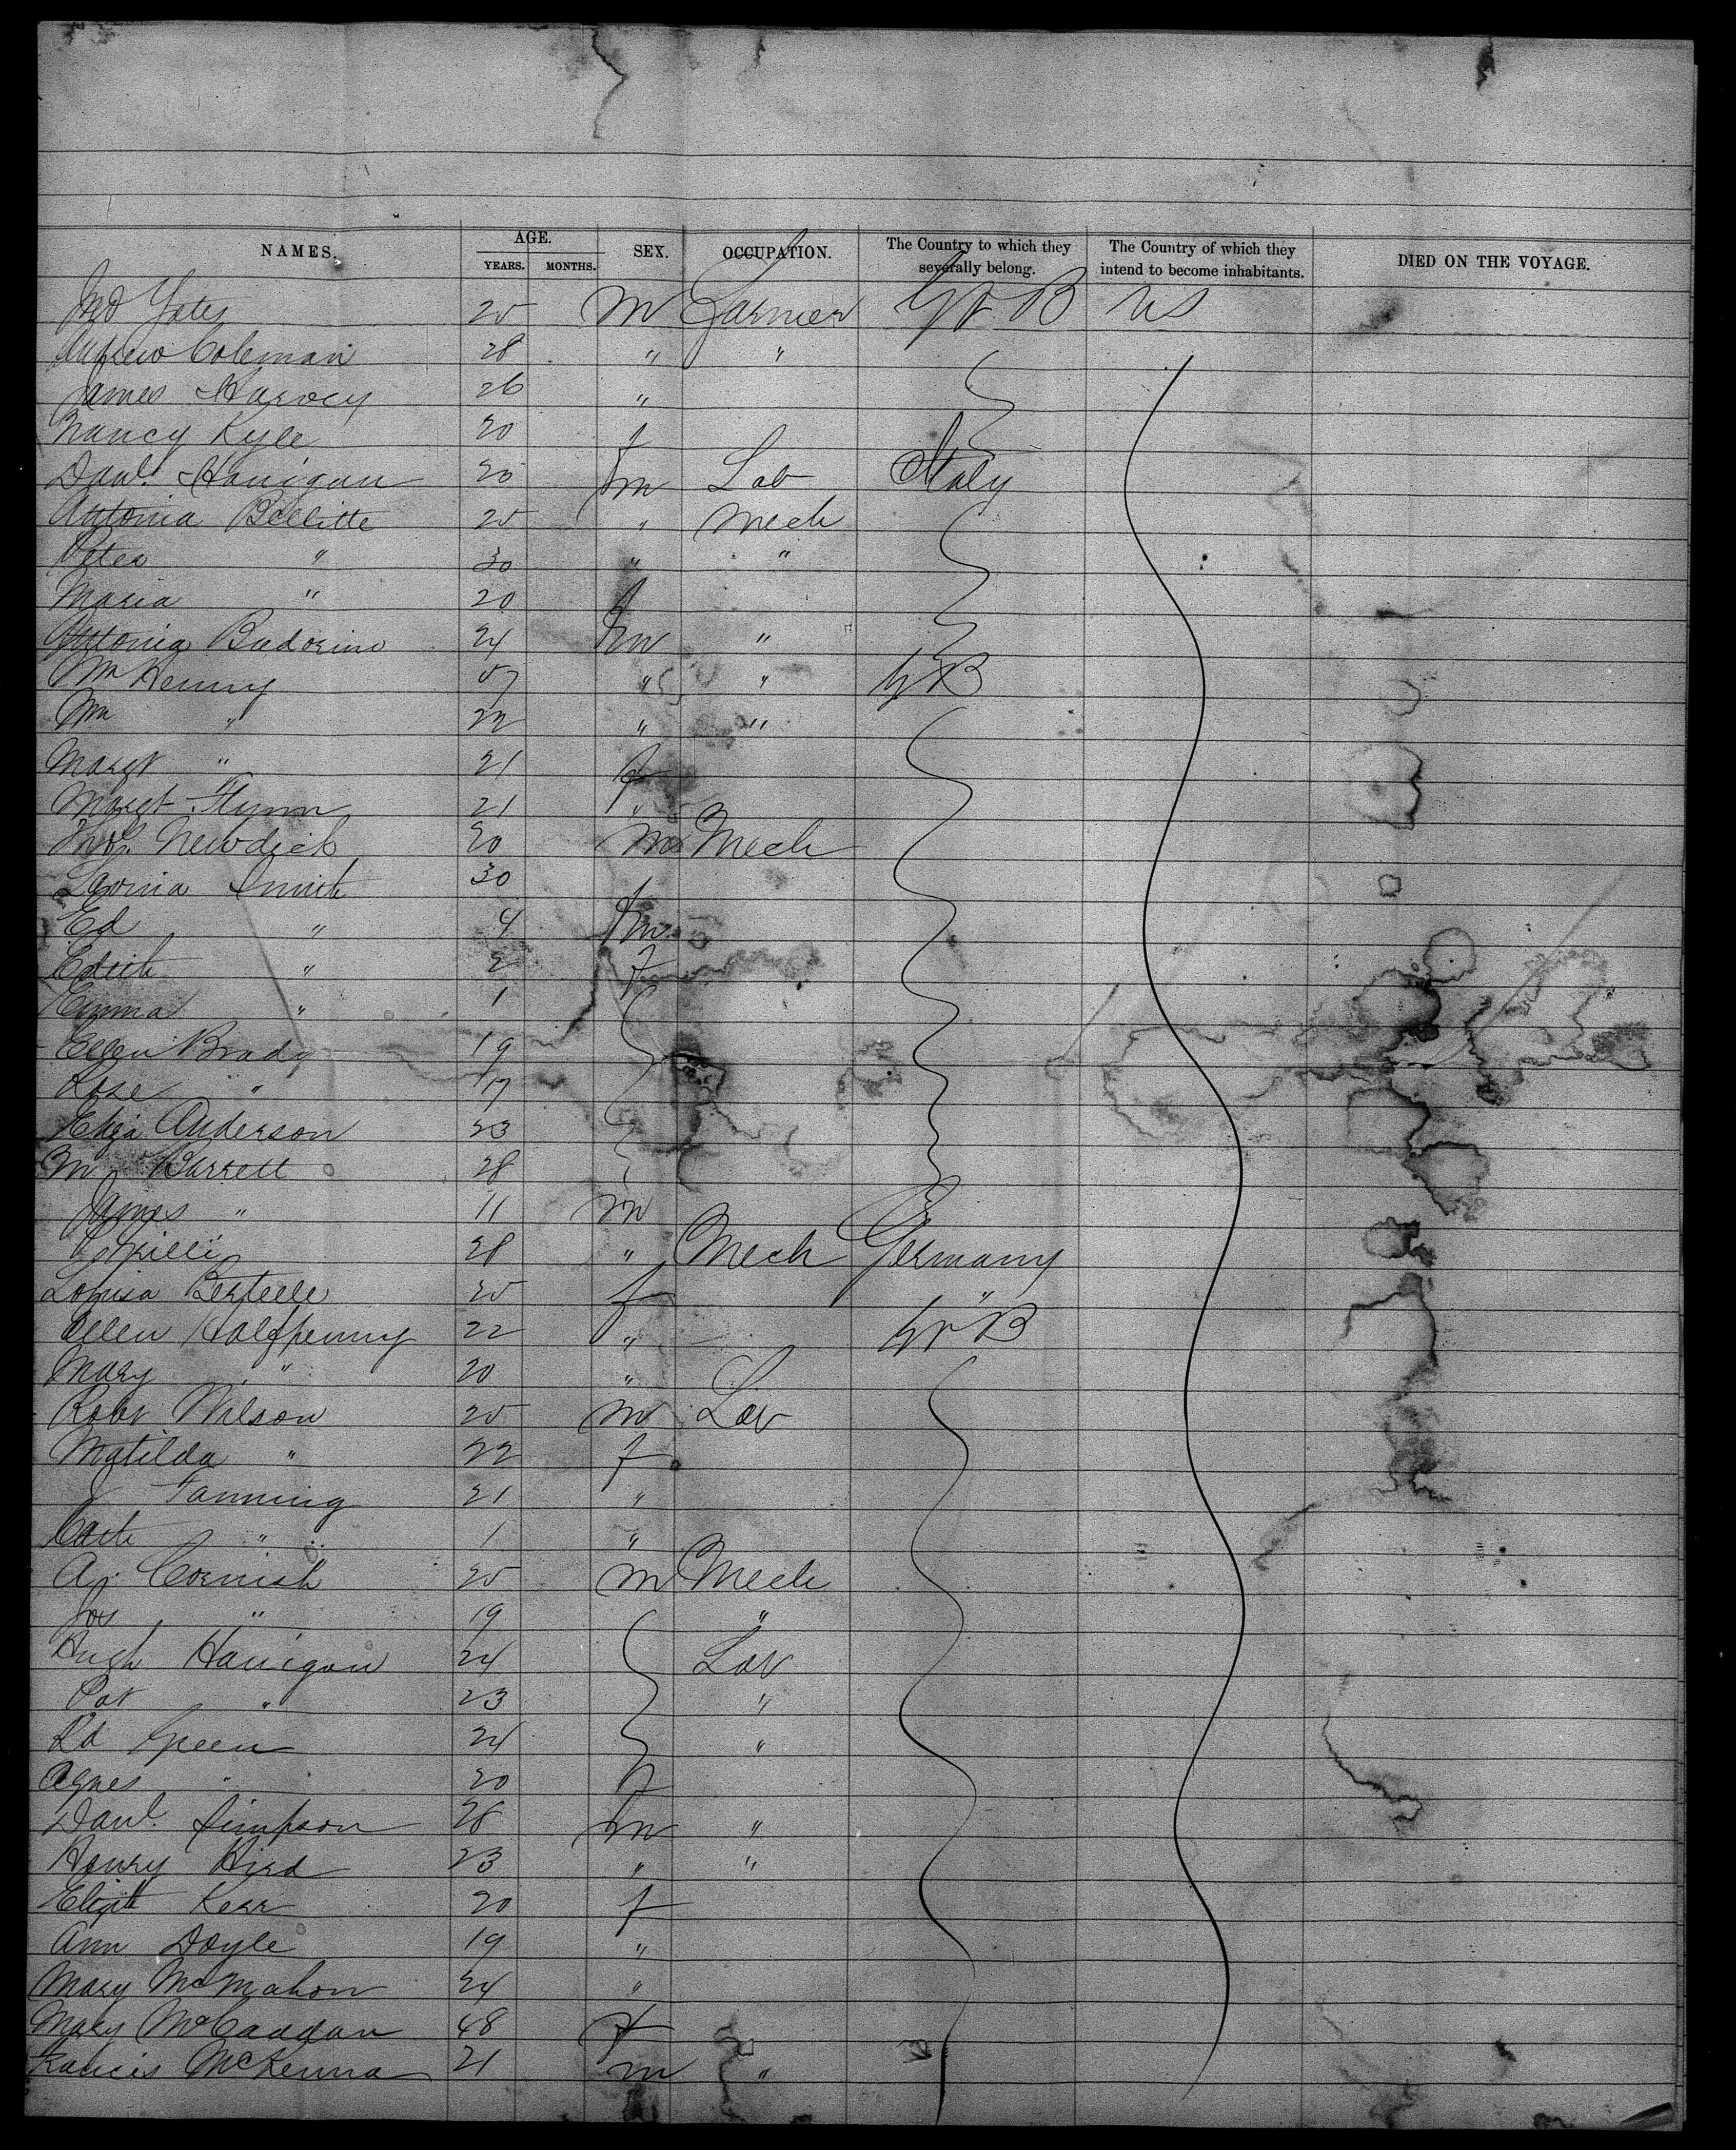 NAMES. AGE. YEARS. MONTHS. SEX. OCCUPATION. The Country to which they severally belong. The Country of which they intend to become inhabitants. DIED ON THE VOYAGE.
Jno Yates 25 m Farmer Gr B US
Andrew Coleman 28 " "
James Harvey 26 "
Nancy Kyle 20 f
Danl. Hanigan 20 m Lab Italy
Antonia Bellitte 25 " Mech
Peter " 30 " "
Maria " 20 f
Antonia Budorino 24 m "
Wm Kenny 57 " " Gr B
Wm " 22 " "
Margt " 21 f
Margt Flynn 21 "
Newdick 20 m Mech
Lavinia Smith 30 f
Ed " 4 m
Edith " 2 f
Emma " 1
Ellen Brady 19
Rose " 17
Eliza Anderson 23
M Barrett 28
James " 11 m
28 " Mech Germany
Louisa Berteele 25 f "
Ellen Halfpenny 22 " Gr B
Mary " 20 "
Robt Wilson 25 m Lab
Matilda " 22 f
J Fanning 21 "
Cath " 1 "
A. Cornish 25 m Mech
Jos " 19 "
Hugh Hanigan 24 Lab
Pat " 23 "
Ed Green 24 "
Agnes " 20 f
Danl. Simpson 28 m "
Henry Hird 23 " "
Elizth Kerr 20 f
Ann Doyle 19 "
Mary McMahon 24 "
Mary McCaddan 48 f
Francis McKenna 21 m "